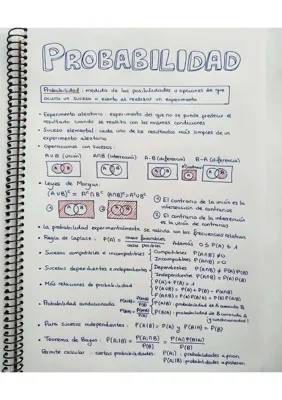 PROBABILIDAD
Probabilidad : medida de las posibilidades u opciones de que
ocurra un suceso o evento al realizar un experimento
• Experimento aleatorio : experimento del que no se puede predecir el
resultado cuando se realiza con las mismas condiciones
• Suceso elemental : cada uno de los resultados más simples de un
experimento aleatorio
• Operaciones con sucesos :
A∪B (unión) A∩B (intersección) A-B (diferencia) B-A (diferencia)
A B A B A B A B
• Leyes de Morgan :
(A∪B)ᶜ = Aᶜ∩Bᶜ (A∩B)ᶜ = Aᶜ∪Bᶜ
① El contrario de la unión es la
intersección de contrarios
① A B ② A B
② El contrario de la intersección
es la unión de contrarios
• La probabilidad experimentalmente se calcula con las frecuencias relativas
• Regla de Laplace : P(A) = casos favorables / casos posibles Además 0 ≤ P(A) ≤ 1
• Sucesos compatibles e incompatibles Compatibles P(A∩B) ≠ 0
Incompatibles P(A∩B) = 0
• Sucesos dependientes e independientes Dependientes P(A∩B) ≠ P(A)·P(B)
Independientes P(A∩B) = P(A)·P(B)
• Más relaciones de probabilidad
• Probabilidad condicionada
• Para sucesos independientes : P(A|B) = P(A) y P(B|A) = P(B)
• Teorema de Bayes :
Permite calcular : ciertas probabilidades